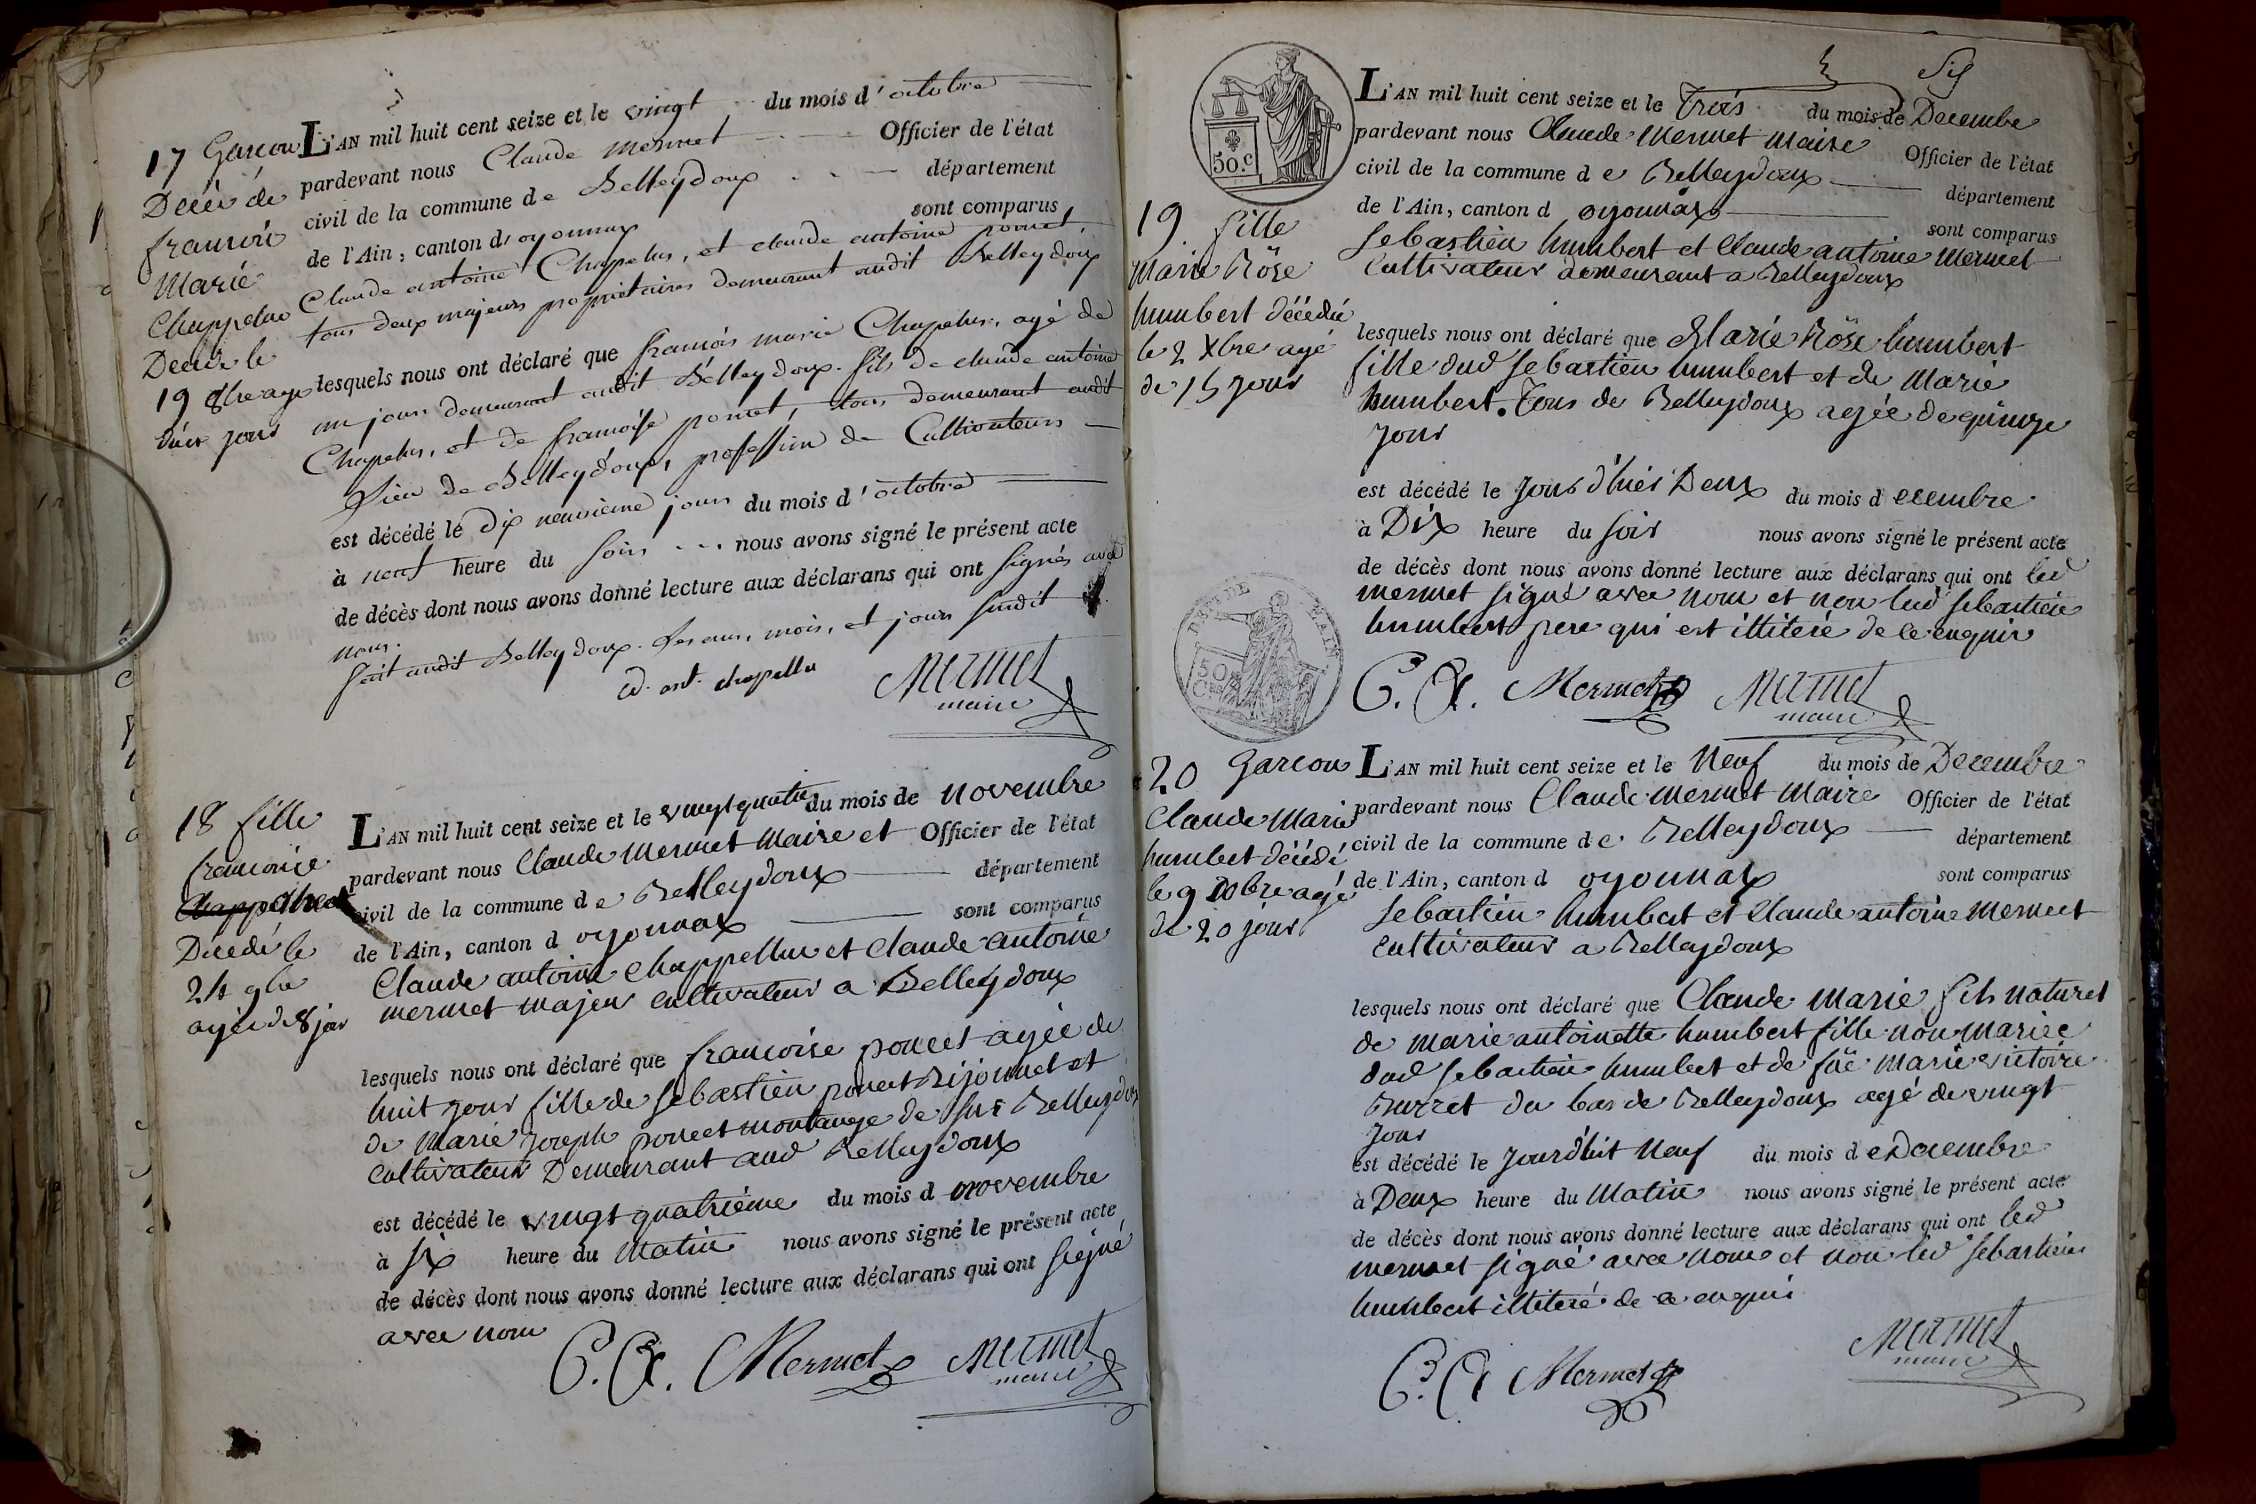 17 Garcon
Décés de
francois
Marie
Chappeluc
Decede le
19 8bre age
d'un jour
L'AN mil huit cent seize et le vingt du mois d'octobre
pardevant nous Claude mermet Officier de l'état
civil de la commune de Belleydoux département
de l'Ain, canton d'oyonnax sont comparus
Claude antoine Chapelus, et claude antoine poncet,
tous deux majeurs proprietaires demeurant audit Belleydoux
lesquels nous ont déclaré que francois marie Chapelus, agé de
un jour demeurant audit Belleydoux. fils de claude antoine
Chapelus, et de francoise poncet, tous demeurant audit
lieu de Belleydoux, profession de Cultivateurs
est décédé le dix neuvieme jour du mois d'octobre
à neuf heure du soir nous avons signé le présent acte
de décès dont nous avons donné lecture aux déclarans qui ont signés avec
nous.
fait audit Belleydoux. les an, mois, et jour susdit
Cd. ant. chapellu Mermet
maire
18 fille
francoise
Decedé le
24 9bre
agée de 8 jour
L'AN mil huit cent seize et le vingt quatre du mois de novembre
pardevant nous Claude Mermet Maire et Officier de l'état
civil de la commune de Belleydoux département
de l'Ain, canton d oyonnax sont comparus
Claude antoine Chappellue et Claude antoine
mermet majeur cultivateur a Belleydoux
lesquels nous ont déclaré que francoise poncet agée de
huit jour fille de sebastien poncet Bijonnet et
de Marie Joseph poncet montange de sur Belleydoux
cultivateur Demeurant aud Belleydoux
est décédé le vingt quatriéme du mois d novembre
à six heure du Matin nous avons signé le présent acte
de décès dont nous avons donné lecture aux déclarans qui ont signé
avec nous
C. A. Mermet Mermet
maire
50.c
19. fille
Marie Rose
humbert décédée
le 2 Xbre agé
de 15 jour
DEP. DE L'AIN
50
L'AN mil huit cent seize et le Trois du mois de Decembre
pardevant nous Claude Mermet Maire Officier de l'état
civil de la commune d e Belleydoux département
de l'Ain, canton d oyonnax sont comparus
sebastien humbert et Claude antoine Mermet
Cultivateur demeurant a Belleydoux
lesquels nous ont déclaré que Marie Rose humbert
fille dud sebastien humbert et de Marie
humbert. Tous de Belleydoux agée de quinze
jour
est décédé le jour d'hier Deux du mois d ecembre
à Dix heure du soir nous avons signé le présent acte
de décès dont nous avons donné lecture aux déclarans qui ont led
mermet signé avec nous et non led sebastien
humbert pere qui est illiteré de ce enquis
C. A. Mermet Mermet
maire
20 Garcon
Claude Marie
humbert décédé
le 9 Xbre agé
de 20 jour
L'AN mil huit cent seize et le Neuf du mois de Decembre
pardevant nous Claude Mermet Maire Officier de l'état
civil de la commune d e Belleydoux département
de l'Ain, canton d oyonnax sont comparus
sebastien humbert et Claude antoine Mermet
cultivateur a Belleydoux
lesquels nous ont déclaré que Claude Marie fils naturel
de marie antoinette humbert fille non mariée
dud sebastien humbert et de fue Marie victoire
Burret du bas de Belleydoux agé de vingt
jour
est décédé le jourd'huit Neuf du mois d e Decembre
à Deux heure du Matin nous avons signé le présent acte
de décès dont nous avons donné lecture aux déclarans qui ont led
mermet signé avec nous et non led sebastien
humbert illiteré de ce enquis
C. A. Mermet Mermet
maire